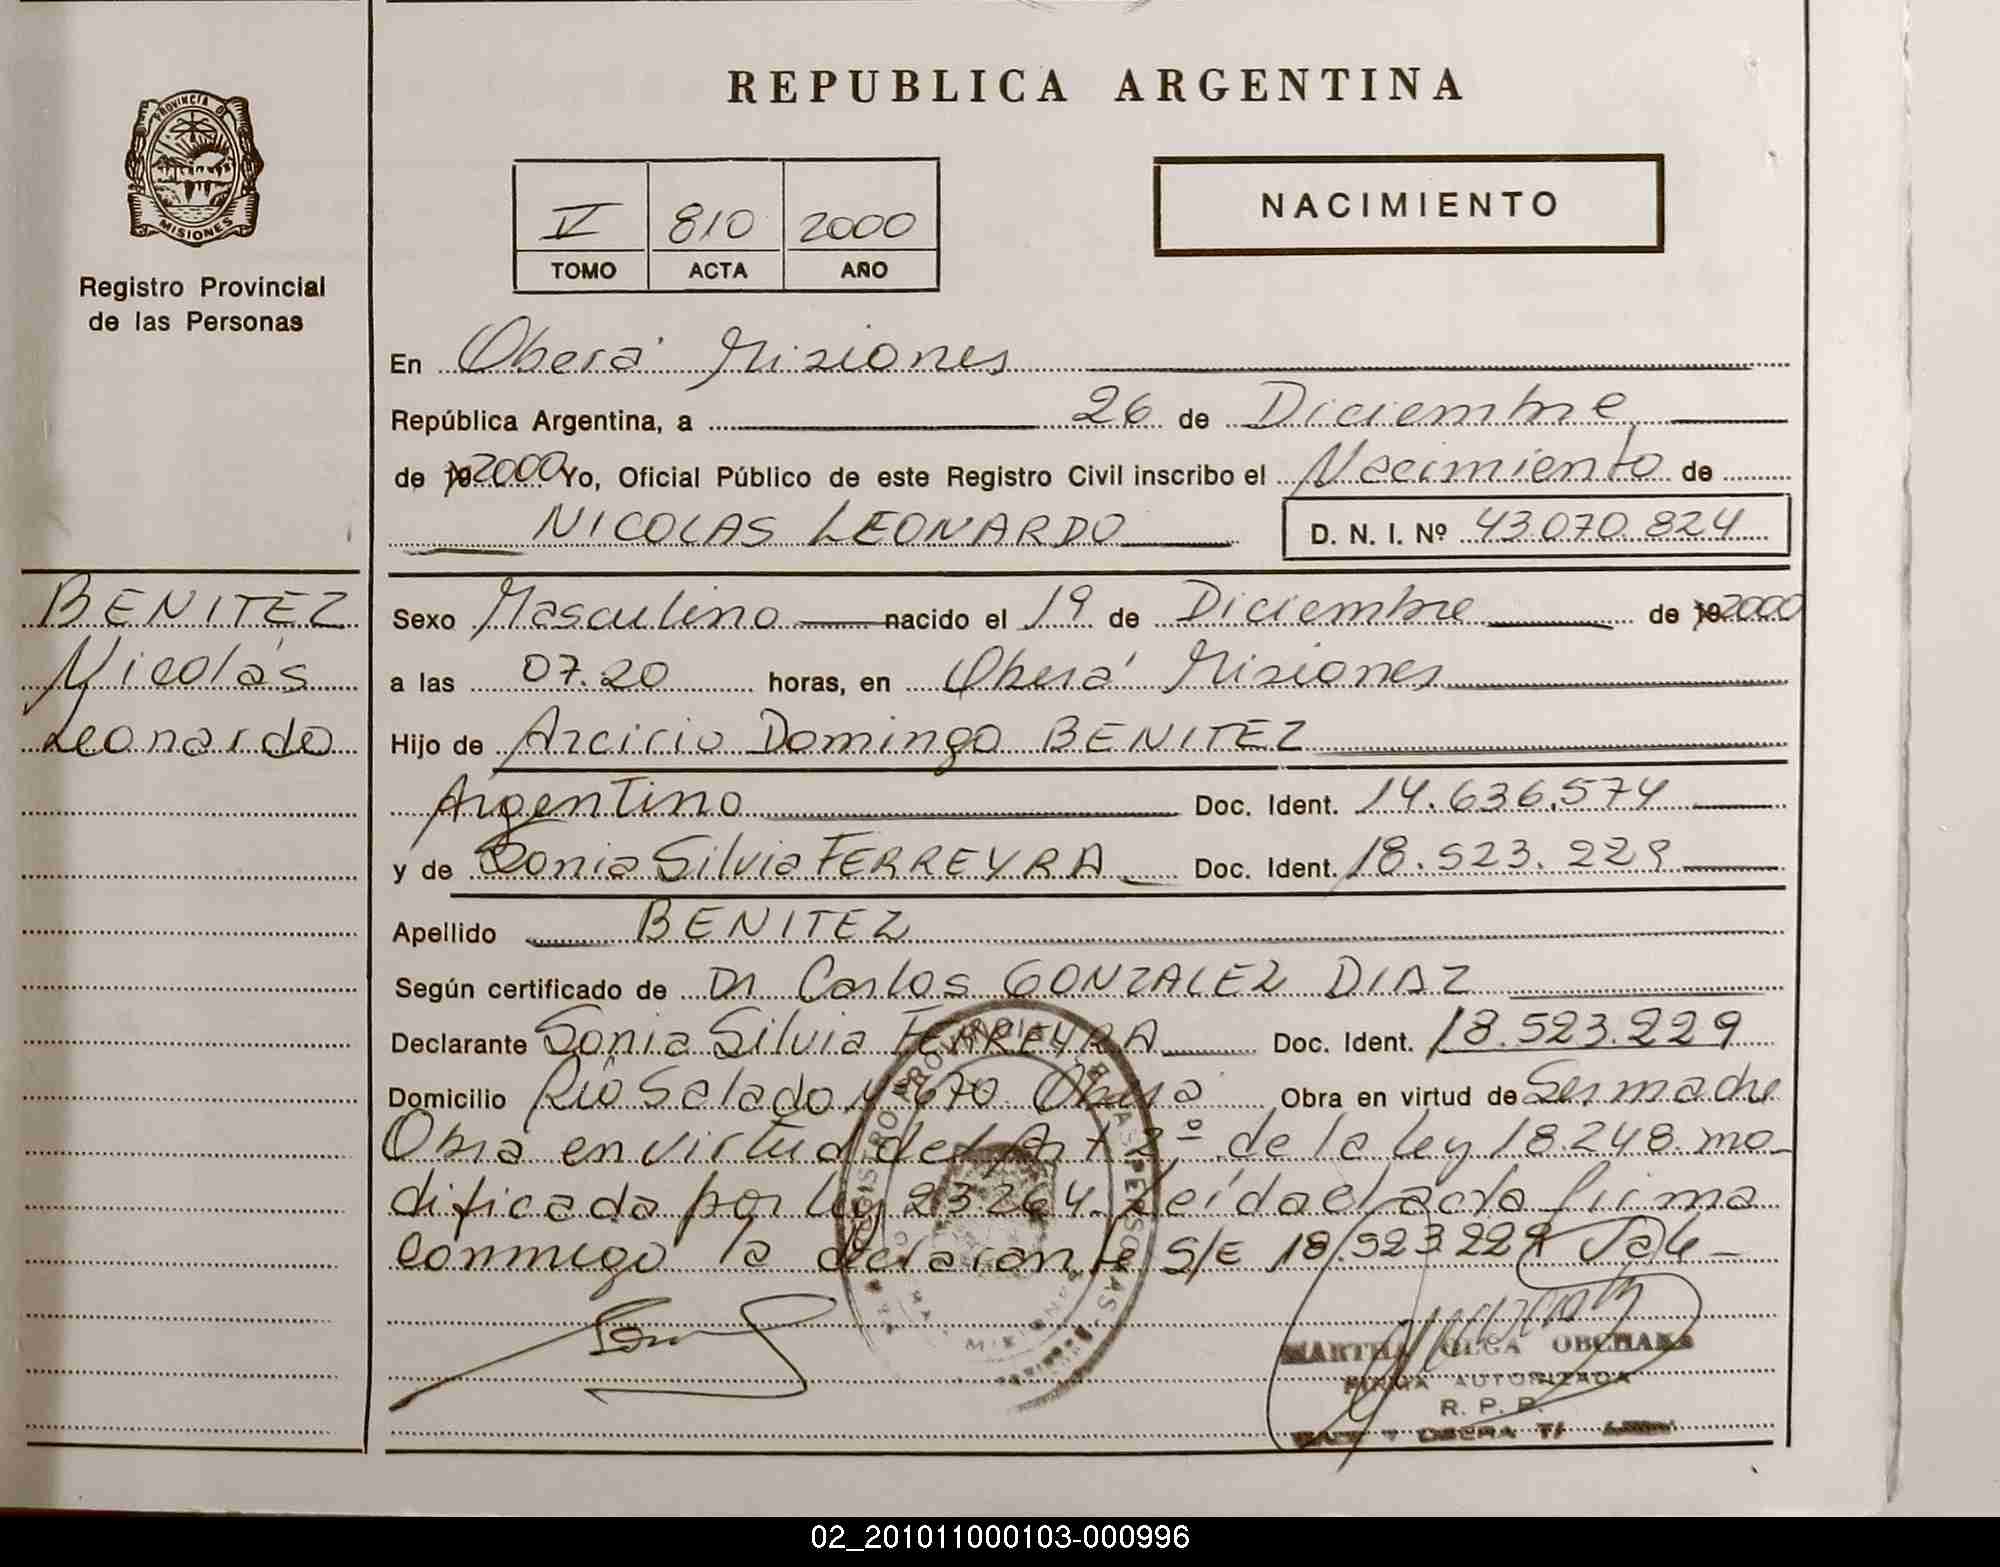 REPUBLICA ARGENTINA
PROVINCIA DE
MISIONES
Registro Provincial
de las Personas
IV 810 2000
TOMO ACTA AÑO
NACIMIENTO
En Oberá Misiones
República Argentina, a 26 de Diciembre
de 19 2000 Yo, Oficial Público de este Registro Civil inscribo el Nacimiento de
NICOLAS LEONARDO D. N. I. Nº 43.070.824
BENITEZ
Nicolás
Leonardo
Sexo Masculino nacido el 19 de Diciembre de 19 2000
a las 07.20 horas, en Oberá Misiones
Hijo de Arcirio Domingo BENITEZ
Argentino Doc. Ident. 14.636.574
y de Sonia Silvia FERREYRA Doc. Ident. 18.523.229
Apellido BENITEZ
Según certificado de Dr Carlos GONZALEZ DIAZ
Declarante Sonia Silvia FERREYRA Doc. Ident. 18.523.229
Domicilio Río Salado Nº 670 Oberá Obra en virtud de Ser madre
Obra en virtud del Art 2º de la ley 18.248 mo-
dificada por ley 23264. Leída el acta firma
conmigo la declarante S/E 18.523.229 Vale-
MARTHA OLGA OBCHAKS
FIRMA AUTORIZADA
R. P. P.
02_201011000103-000996